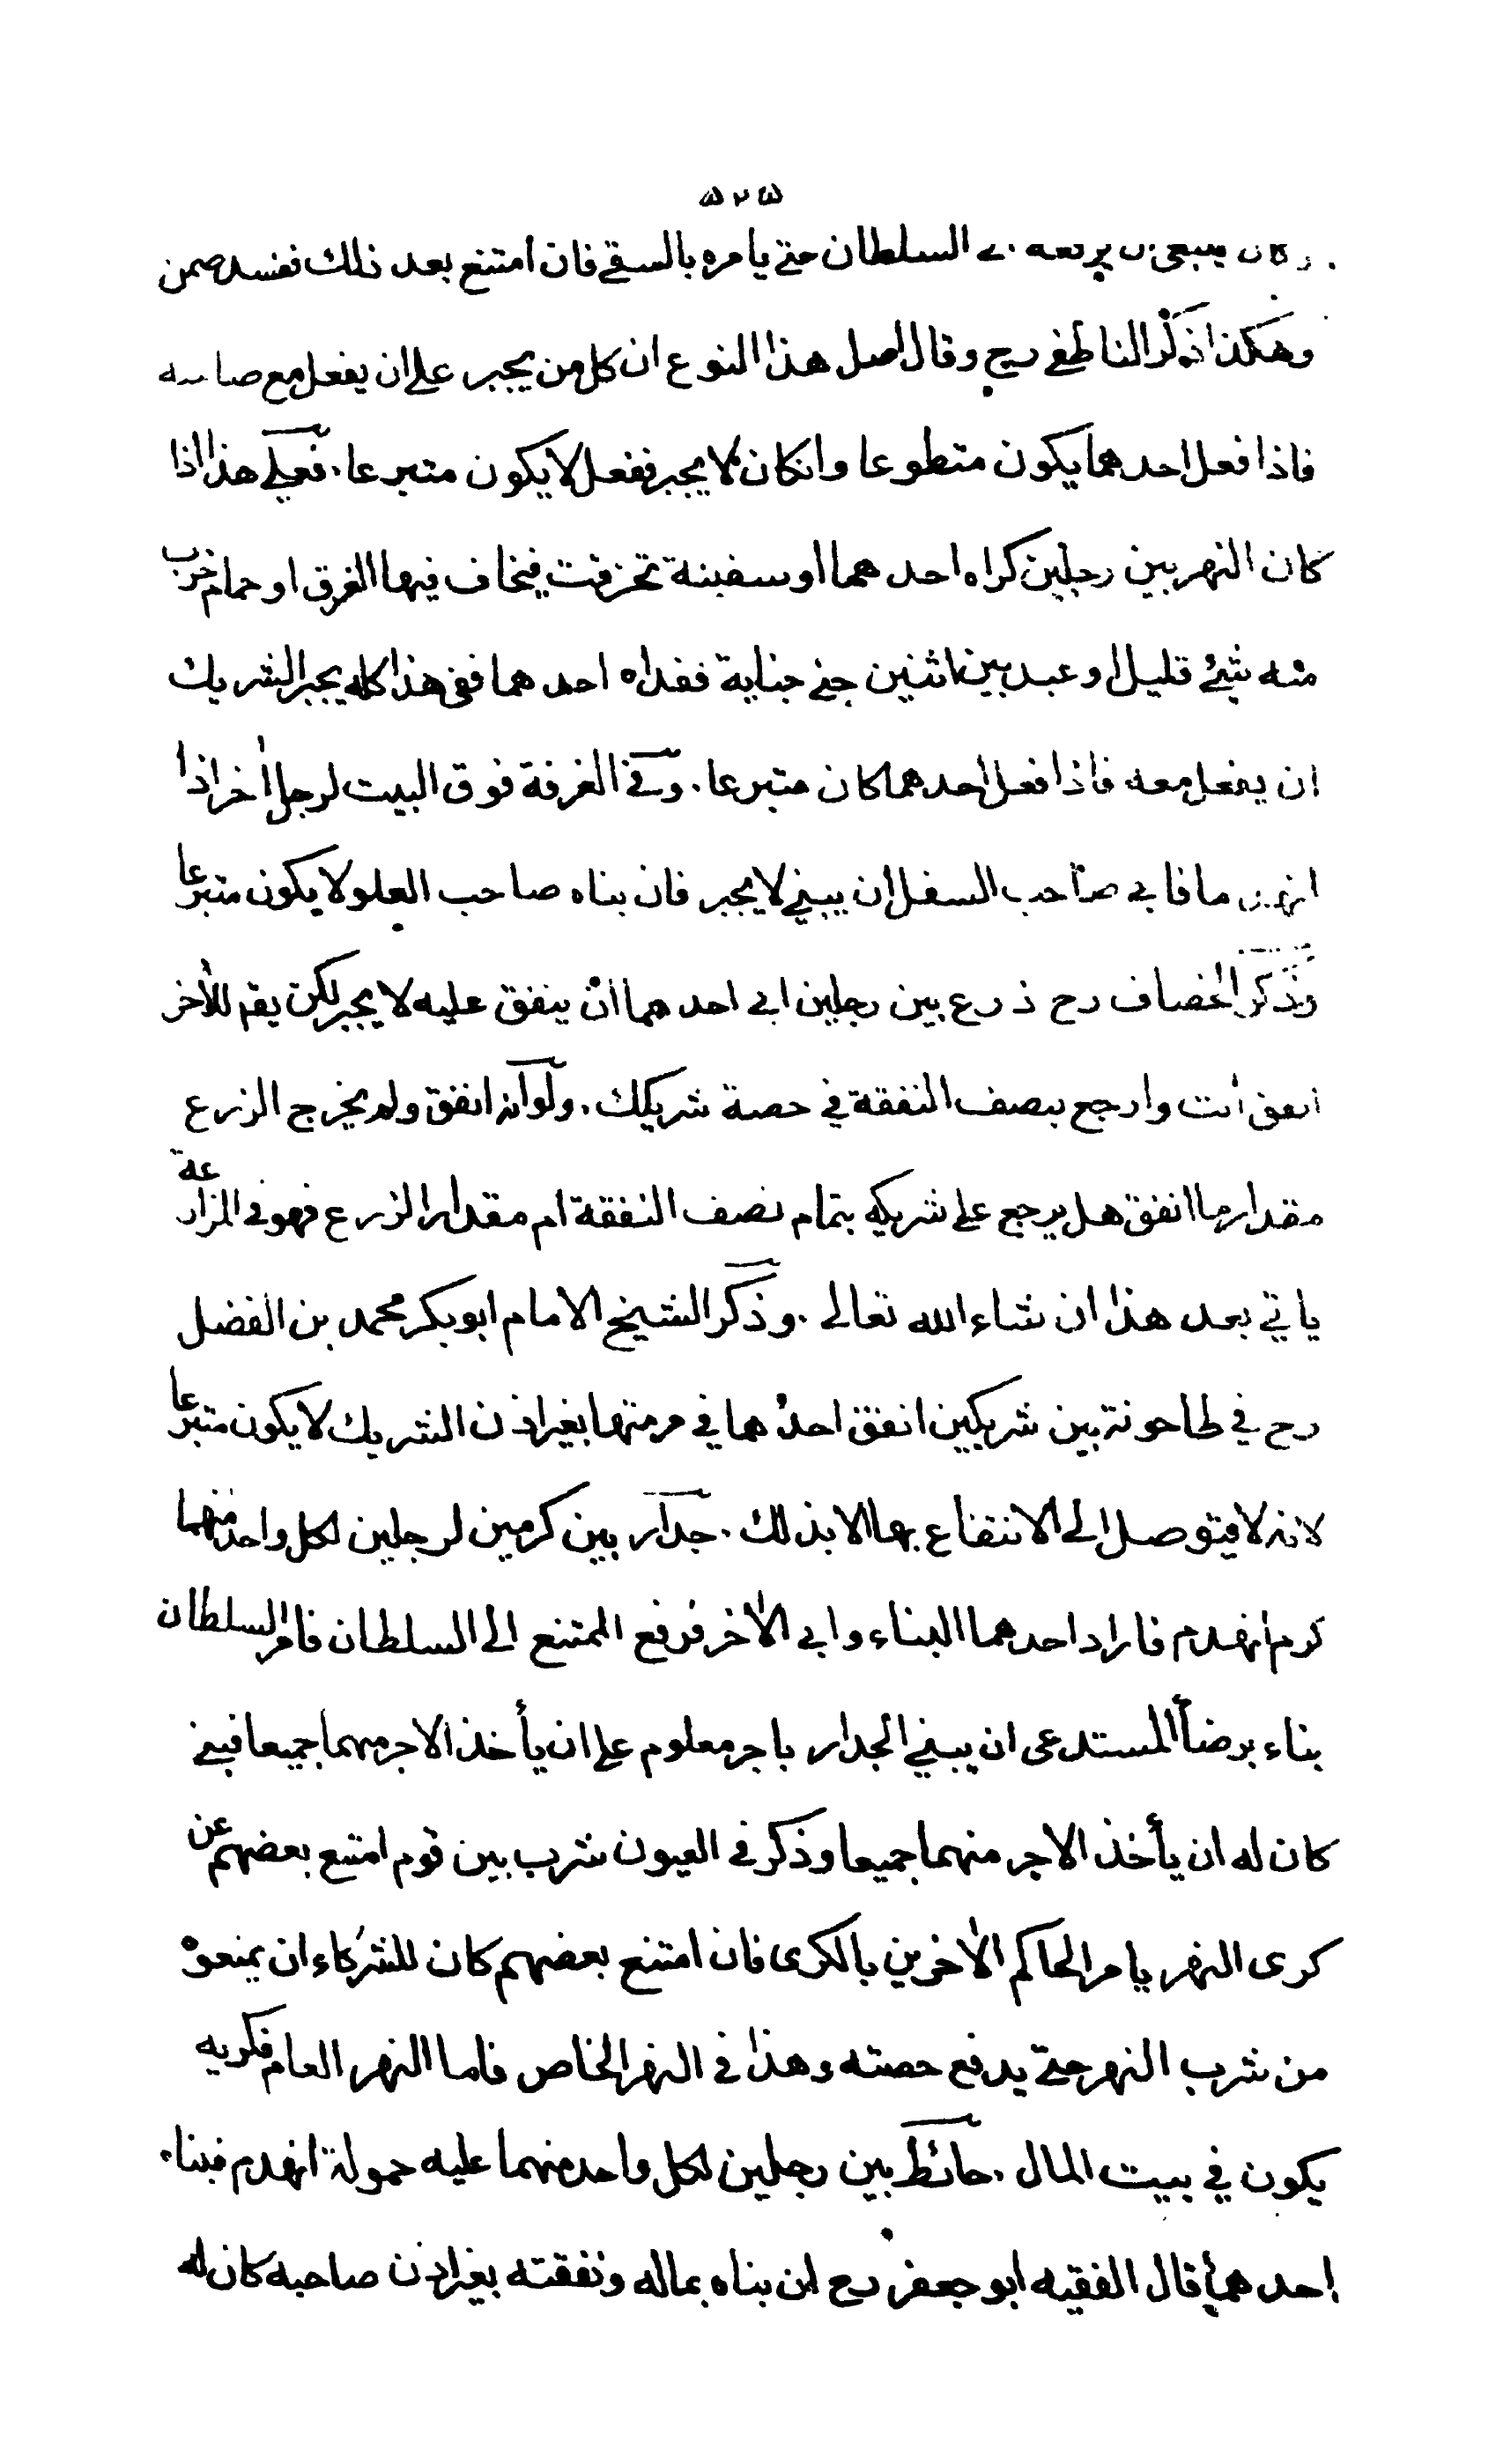 ۵۲۵
السلطان حتى يامره بالسقي فان امتنع بعد ذلك ففسد ضمن
وهكذا ذكر الناطفي رح وقال اصل هذا النوع ان كل من يجبر على ان يفعل مع
فاذا فعل احدهما يكون متطوعا وانكان لا يجبر ففعل لا يكون متبرعا . فعلى هذا اذا
كان النهر بين رجلين كراه احدهما او سفينة تخرقت فيخاف فيها الغرق او حمام خرب
منه شئ قليل او عبد بين اثنين جنى جناية ففداه احدهما ففي هذا كله يجبر الشريك
ان يفعل معه فاذا فعل احدهما كان متبرعا . وفي الغرفة فوق البيت لرجل اٰخر اذا
انهدما فابى صاحب السفل ان يبني لا يجبر فان بناه صاحب العلو لا يكون متبرعا
وذكر الخصاف رح زرع بين رجلين ابى احدهما ان ينفق عليه لا يجبر لكن يقم للاٰخر
انفق انت وارجع بنصف النفقة في حصة شريكك . ولو انه انفق ولم يخرج الزرع
مقدار ما انفق هل يرجع على شريكه بتمام نصف النفقة ام مقدار الزرع فهو في المزارعة
ياتي بعد هذا ان شاء الله تعالى . وذكر الشيخ الامام ابو بكر محمد بن الفضل
رح في طاحونة بين شريكين انفق احدهما في مرمتها بغير اذن الشريك لا يكون متبرعا
لانه لا يتوصل الى الانتفاع بها الا بذلك . جدار بين كرمين لرجلين لكل واحد منهما
كرم انهدم فاراد احدهما البناء وابى الاٰخر فرفع الممتنع الى السلطان فامر السلطان
بناء برضأ المستدعى ان يبني الجدار باجر معلوم على ان يأخذ الاجر منهما جميعا فبنى
كان له ان يأخذ الاجر منهما جميعا وذكر في العيون شرب بين قوم امتنع بعضهم عن
كرى النهر يامر الحاكم الاٰخرين بالكرى فان امتنع بعضهم كان للشركاء ان يمنعوه
من شرب النهر حتى يدفع حصته وهذا في النهر الخاص فاما النهر العام فكريه
يكون في بيت المال . حائط بين رجلين لكل واحد منهما عليه حمولة انهدم فبناه
احدهما قال الفقيه ابو جعفر رح ان بناه بماله ونفقته بغير اذن صاحبه كان له